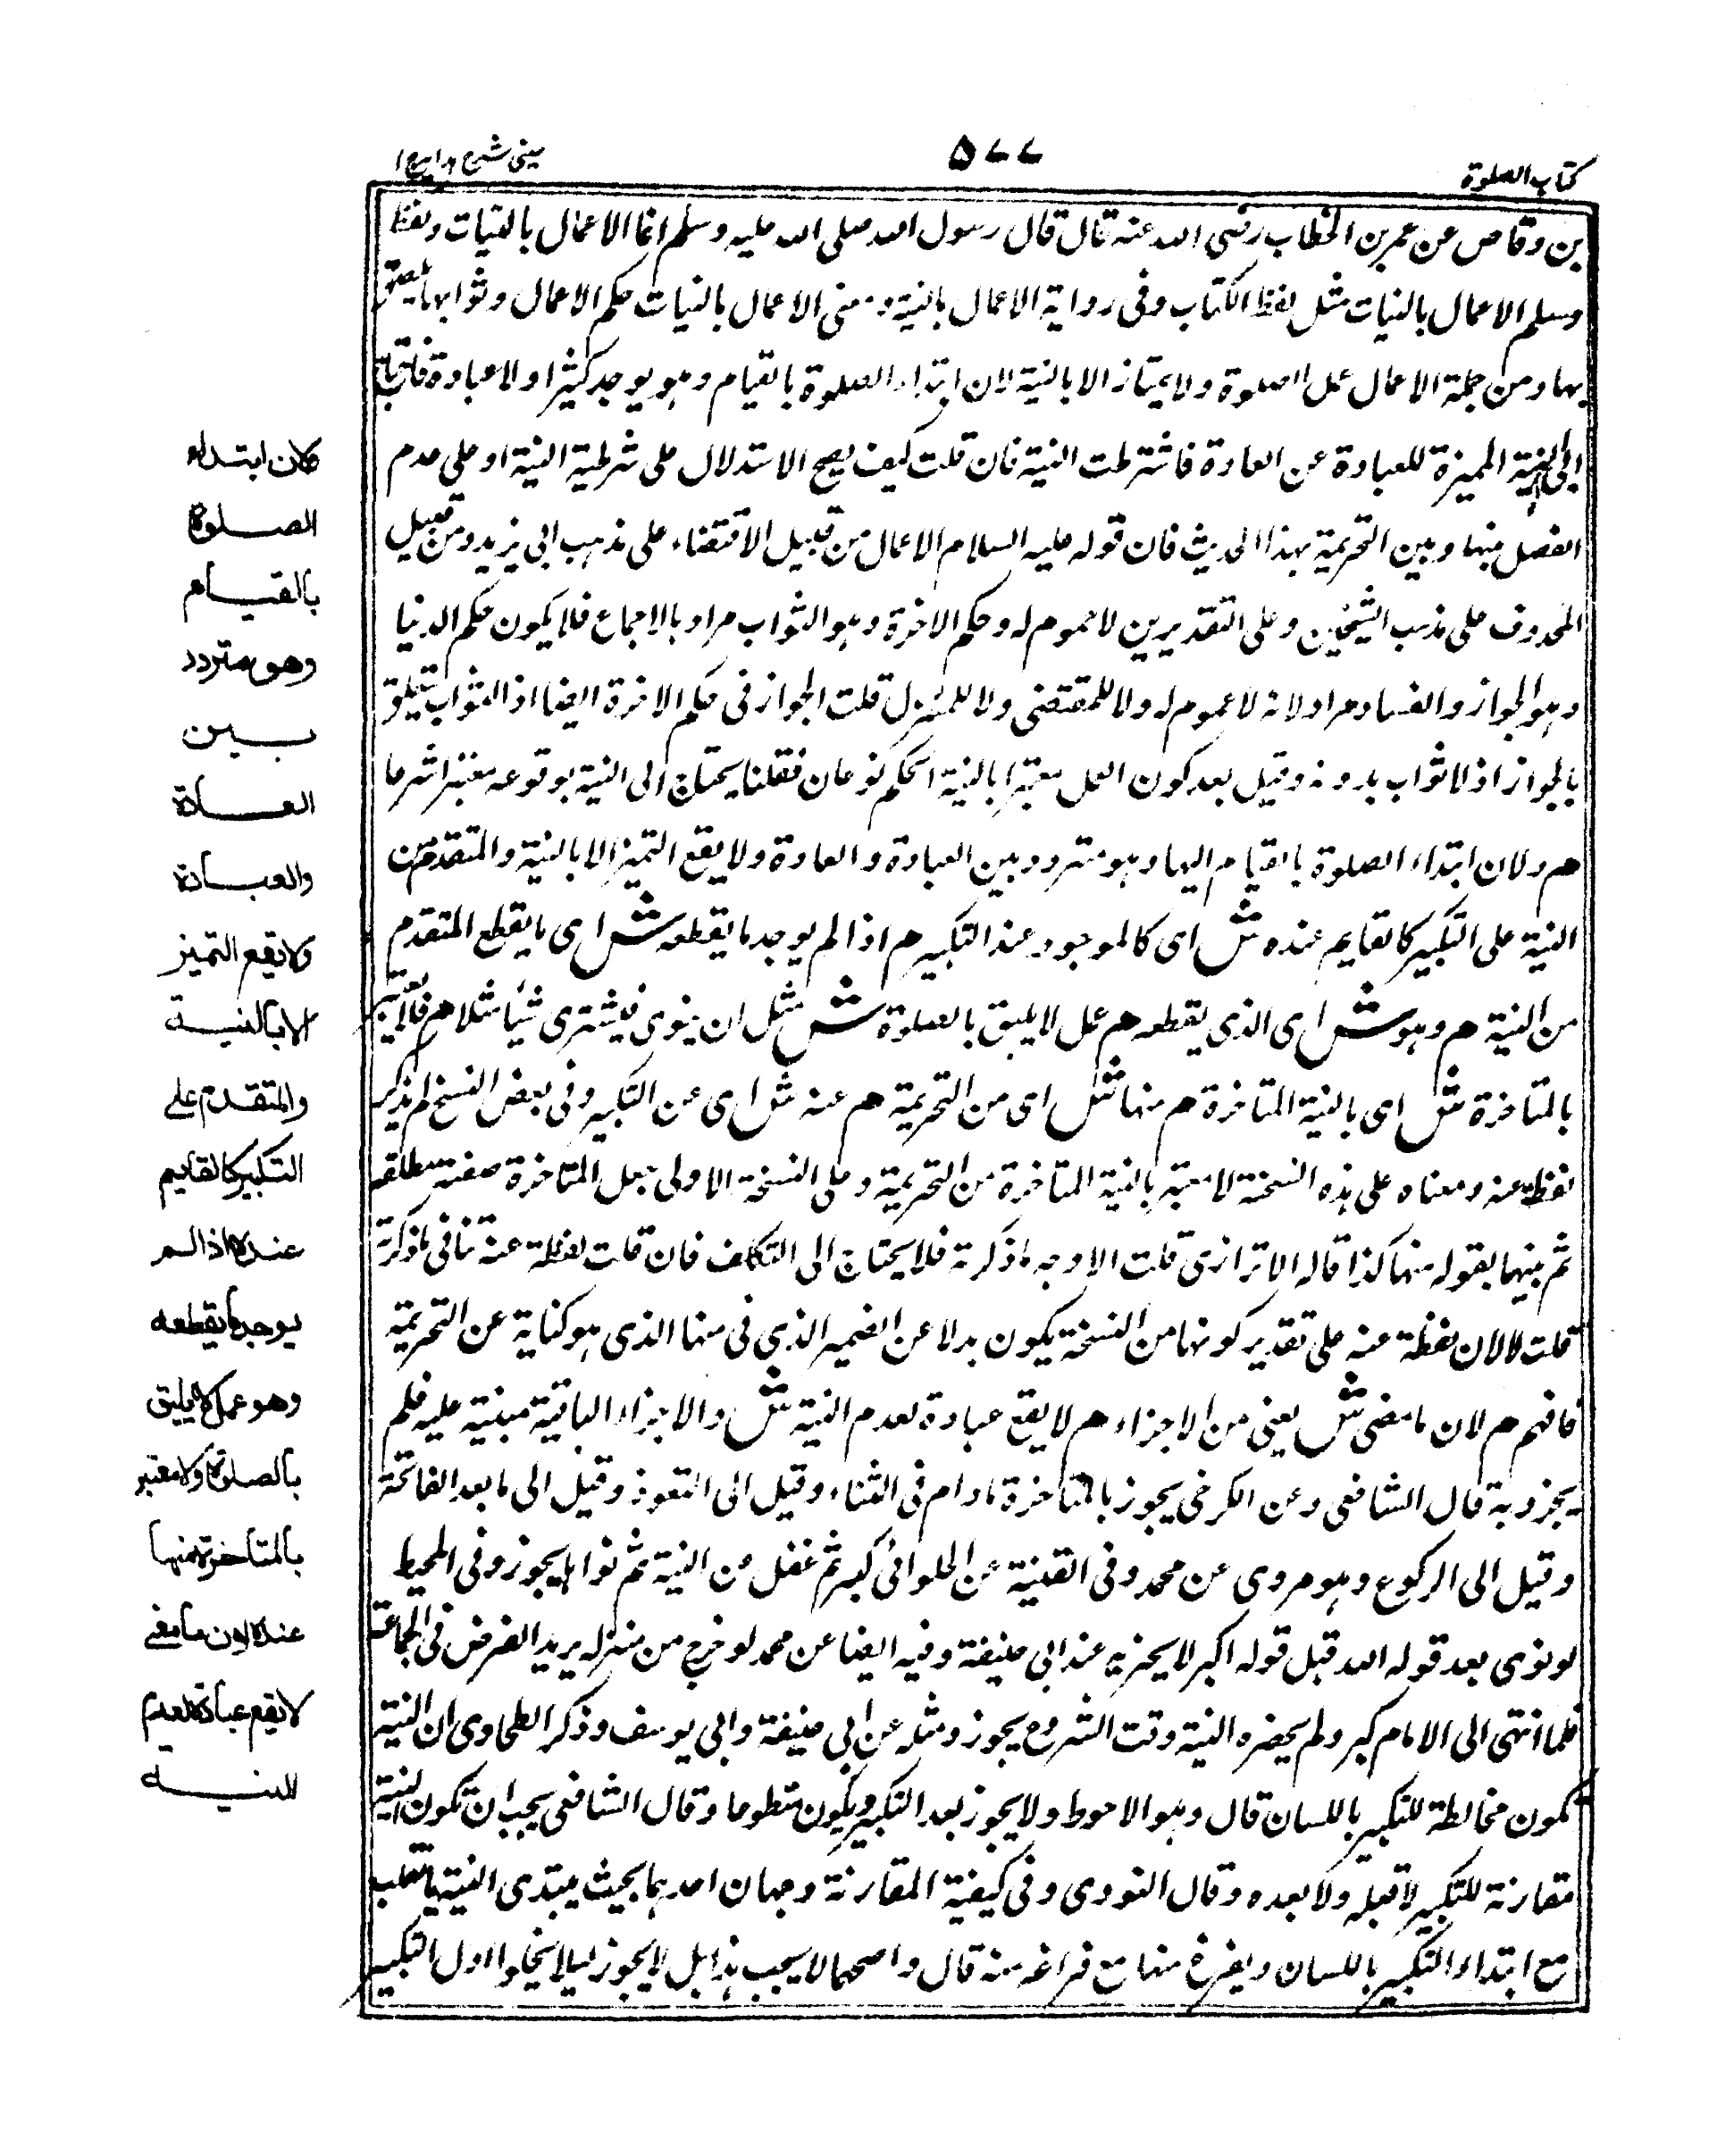 كتاب الصلوة
۵۷۷
عينى شرح هدايه ج ا
بن وقاص عن عمر بن الخطاب رضى الله عنه قال قال رسول الله صلى الله عليه وسلم انما الاعمال بالنيات ولفظ
وسلم الاعمال بالنيات مثل لفظ الكتاب وفى رواية الاعمال بالنية ومعنى الاعمال بالنيات حكم الاعمال وثوابها ملصق
بها ومن جملة الاعمال عمل الصلوة ولا يمتاز الا بالنية لان ابتداء الصلوة بالقيام وهو يوجد كثيرا ولا عبادة فاحتاج
الى النية المميزة للعبادة عن العادة فاشترطت النية فان قلت كيف يصح الاستدلال على شرطية النية او على عدم
الفصل بينها وبين التحريمة بهذا الحديث فان قوله عليه السلام الاعمال من قبيل الاقتضاء على مذهب ابى زيد ومن قبيل
المحذوف على مذهب الشيخين وعلى التقديرين لا عموم له وحكم الاخرة وهو الثواب مراد بالاجماع فلا يكون حكم الدنيا
وهو الجواز والفساد مراد لانه لا عموم له ولا للمقتضى ولا للمشترك قلت الجواز فى حكم الاخرة ايضا اذ الثواب يتعلق
بالجواز اذ لا ثواب بدونه وقيل بعد كون العمل معتبرا بالنية الحكم نوعان فقلنا يحتاج الى النية بوقوعه معتبرا شرعا
هم ولان ابتداء الصلوة بالقيام اليها وهو متردد بين العبادة والعادة ولا يقع التميز الا بالنية والمتقدم من
النية على التكبير كالقايم عنده ش اى كالموجود عند التكبير هم اذا لم يوجد ما يقطعه ش اى ما يقطع المتقدم
من النية هم وهو ش اى الذى يقطعه هم عمل لا يليق بالصلوة ش مثل ان ينوى فيشترى شيئا مثلا هم ولا معتبر
بالمتاخرة ش اى بالنية المتاخرة هم منها ش اى من التحريمة هم عنه ش اى عن التكبير وفى بعض النسخ لم يذكر
لفظة عنه ومعناه على هذه النسخة لا معتبر بالنية المتاخرة من التحريمة وعلى النسخة الاولى جعل المتاخرة صفة مطلقة
ثم بينها بقوله منها كذا قاله الاترازى قلت الاوجه ما ذكرته فلا يحتاج الى التكلف فان قلت لفظة عنه تنافى ما ذكرته
قلت لا لان لفظة عنه على تقدير كونها من النسخة يكون بدلا عن الضمير الذى فى منها الذى هو كناية عن التحريمة
فافهم هم لان ما مضى ش يعنى من الاجزاء هم لا يقع عبادة لعدم النية ش والاجزاء الباقية مبنية عليه فلم
يجز وبه قال الشافعى وعن الكرخى يجوز بالمتاخرة مادام فى الثناء وقيل الى التعوذ وقيل الى ما بعد الفاتحة
وقيل الى الركوع وهو مروى عن محمد وفى القنية عن الحلوائى كبر ثم غفل من النية ثم نواها يجوز وفى المحيط
لو نوى بعد قوله الله قبل قوله اكبر لا يجزيه عند ابى حنيفة وفيه ايضا عن محمد لو خرج من منزله يريد الفرض فى الجماعة
فلما انتهى الى الامام كبر ولم يحضره النية وقت الشروع يجوز ومثله عن ابى حنيفة وابى يوسف وذكر الطحاوى ان النية
تكون مخالطة للتكبير باللسان قال وهو الاحوط ولا يجوز بعد التكبير ويكون متطوعا وقال الشافعى يجب ان تكون النية
مقارنة للتكبير لا قبله ولا بعده وقال النووى وفى كيفية المقارنة وجهان احدهما بحيث يبتدى النية بالقلب
مع ابتداء التكبير باللسان ويفرغ منها مع فراغه منه قال واصحهما لا يجب هذا بل لا يجوز ليلا يخلوا اول التكبير
ولان ابتداء
الصلوة
بالقيام
وهو متردد
بين
العادة
والعبادة
ولا يقع التميز
الا بالنية
والمتقدم على
التكبير كالقايم
عنده اذا لم
يوجد ما يقطعه
وهو عمل لا يليق
بالصلوة ولا معتبر
بالمتاخرة منها
عنه لان ما مضى
لا يقع عبادة لعدم
النية